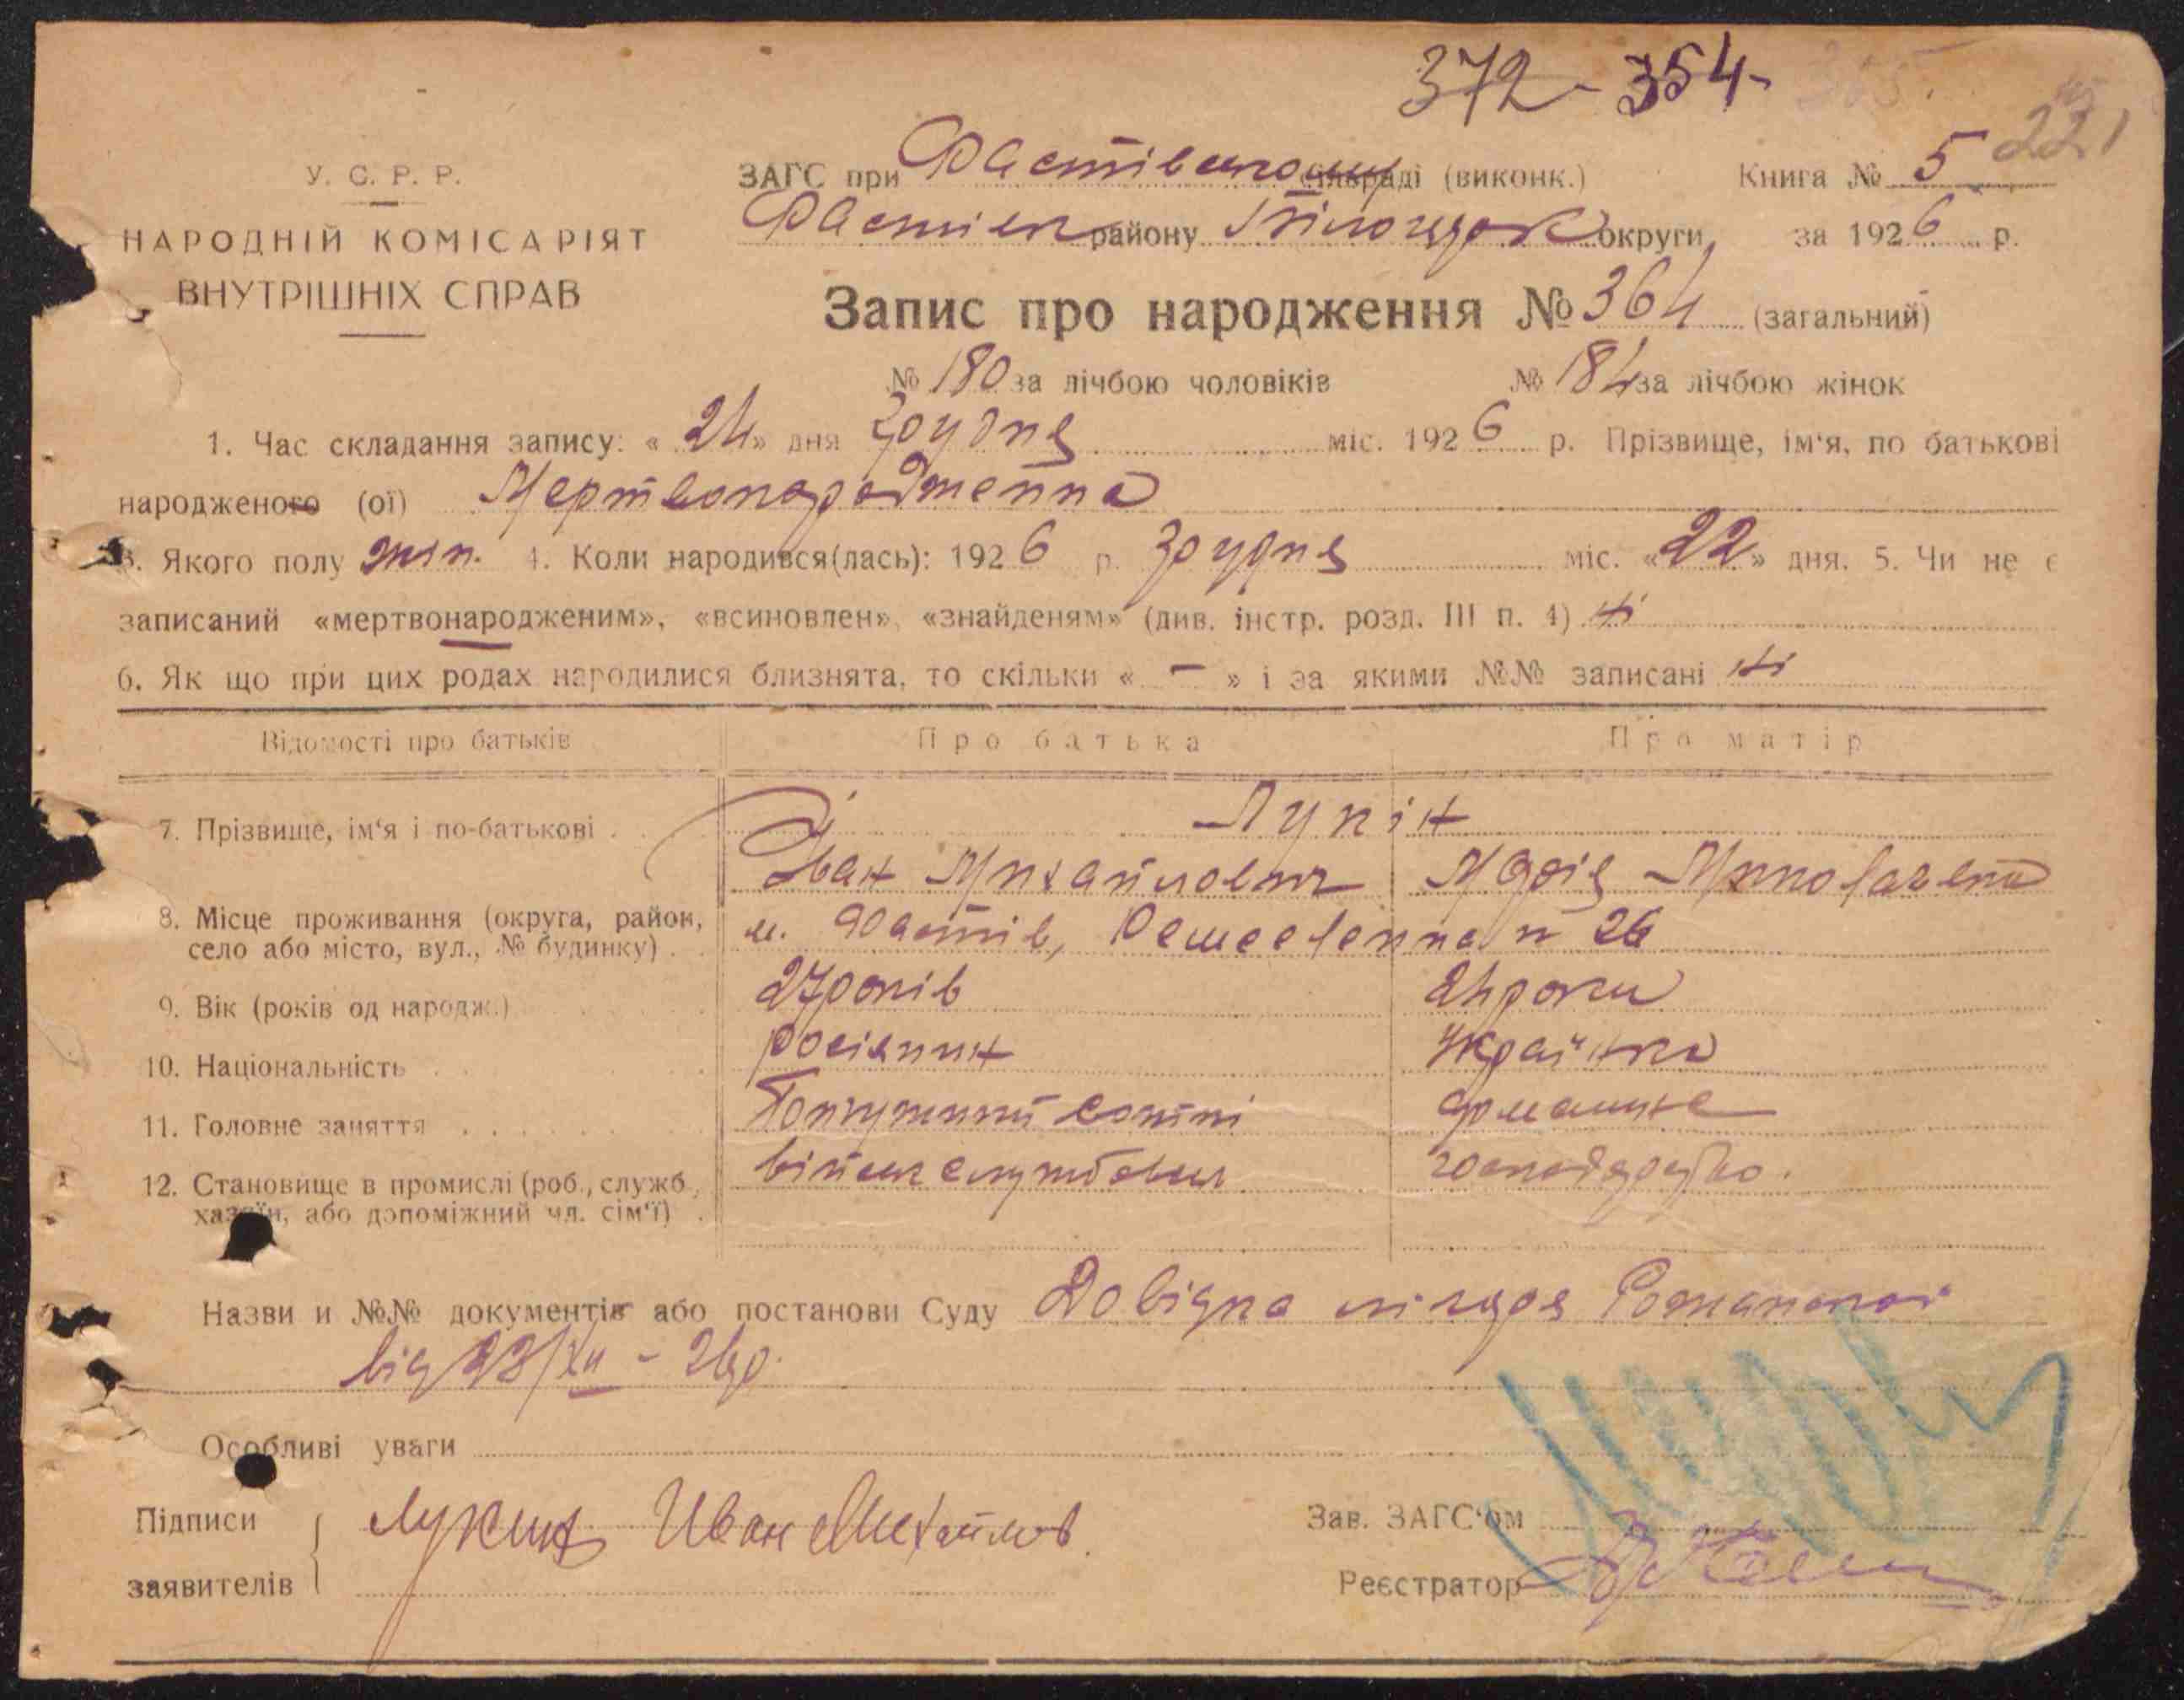 372 - 354-
221
У. С. Р. Р.
НАРОДНІЙ КОМІСАРІЯТ
ВНУТРІШНІХ СПРАВ
ЗАГС при Фастівському сільраді (виконк.) Книга № 5
Фастівск району Білоцерк округи за 1926 р.
Запис про народження № 364 (загальний)
№ 180 за лічбою чоловіків № 184 за лічбою жінок
1. Час складання запису: « 24 » дня грудня міс. 1926 р. Прізвище, ім'я, по батькові
народженого (ої) Мертвонародженна
3. Якого полу жін. 4. Коли народився(лась): 1926 р. грудня міс. «22» дня. 5. Чи не є
записаний «мертвонародженим», «всиновлен», «знайденям» (див. інстр. розд. III п. 4) ні
6. Як що при цих родах народилися близнята, то скільки « – » і за якими №№ записані ні
Відомості про батьків Про батька Про матір
7. Прізвище, ім'я і по-батькові Лукін
Іван Михайлович Марія
8. Місце проживання (округа, район,
село або місто, вул., № будинку) м. Фастів, 26
9. Вік (років од народж.) 27 років 24 роки
10. Національність росіянин українка
11. Головне заняття сотні домашнє
12. Становище в промислі (роб., служб., війск службовец господарство.
хазяїн, або допоміжний чл. сім'ї)
Назви и №№ документів або постанови Суду Довідка лікаря
від 23/XII - 26 р.
Особливі уваги
Підписи Лукин Иван Михайлов.
заявителів
Зав. ЗАГС'ом
Реєстратор